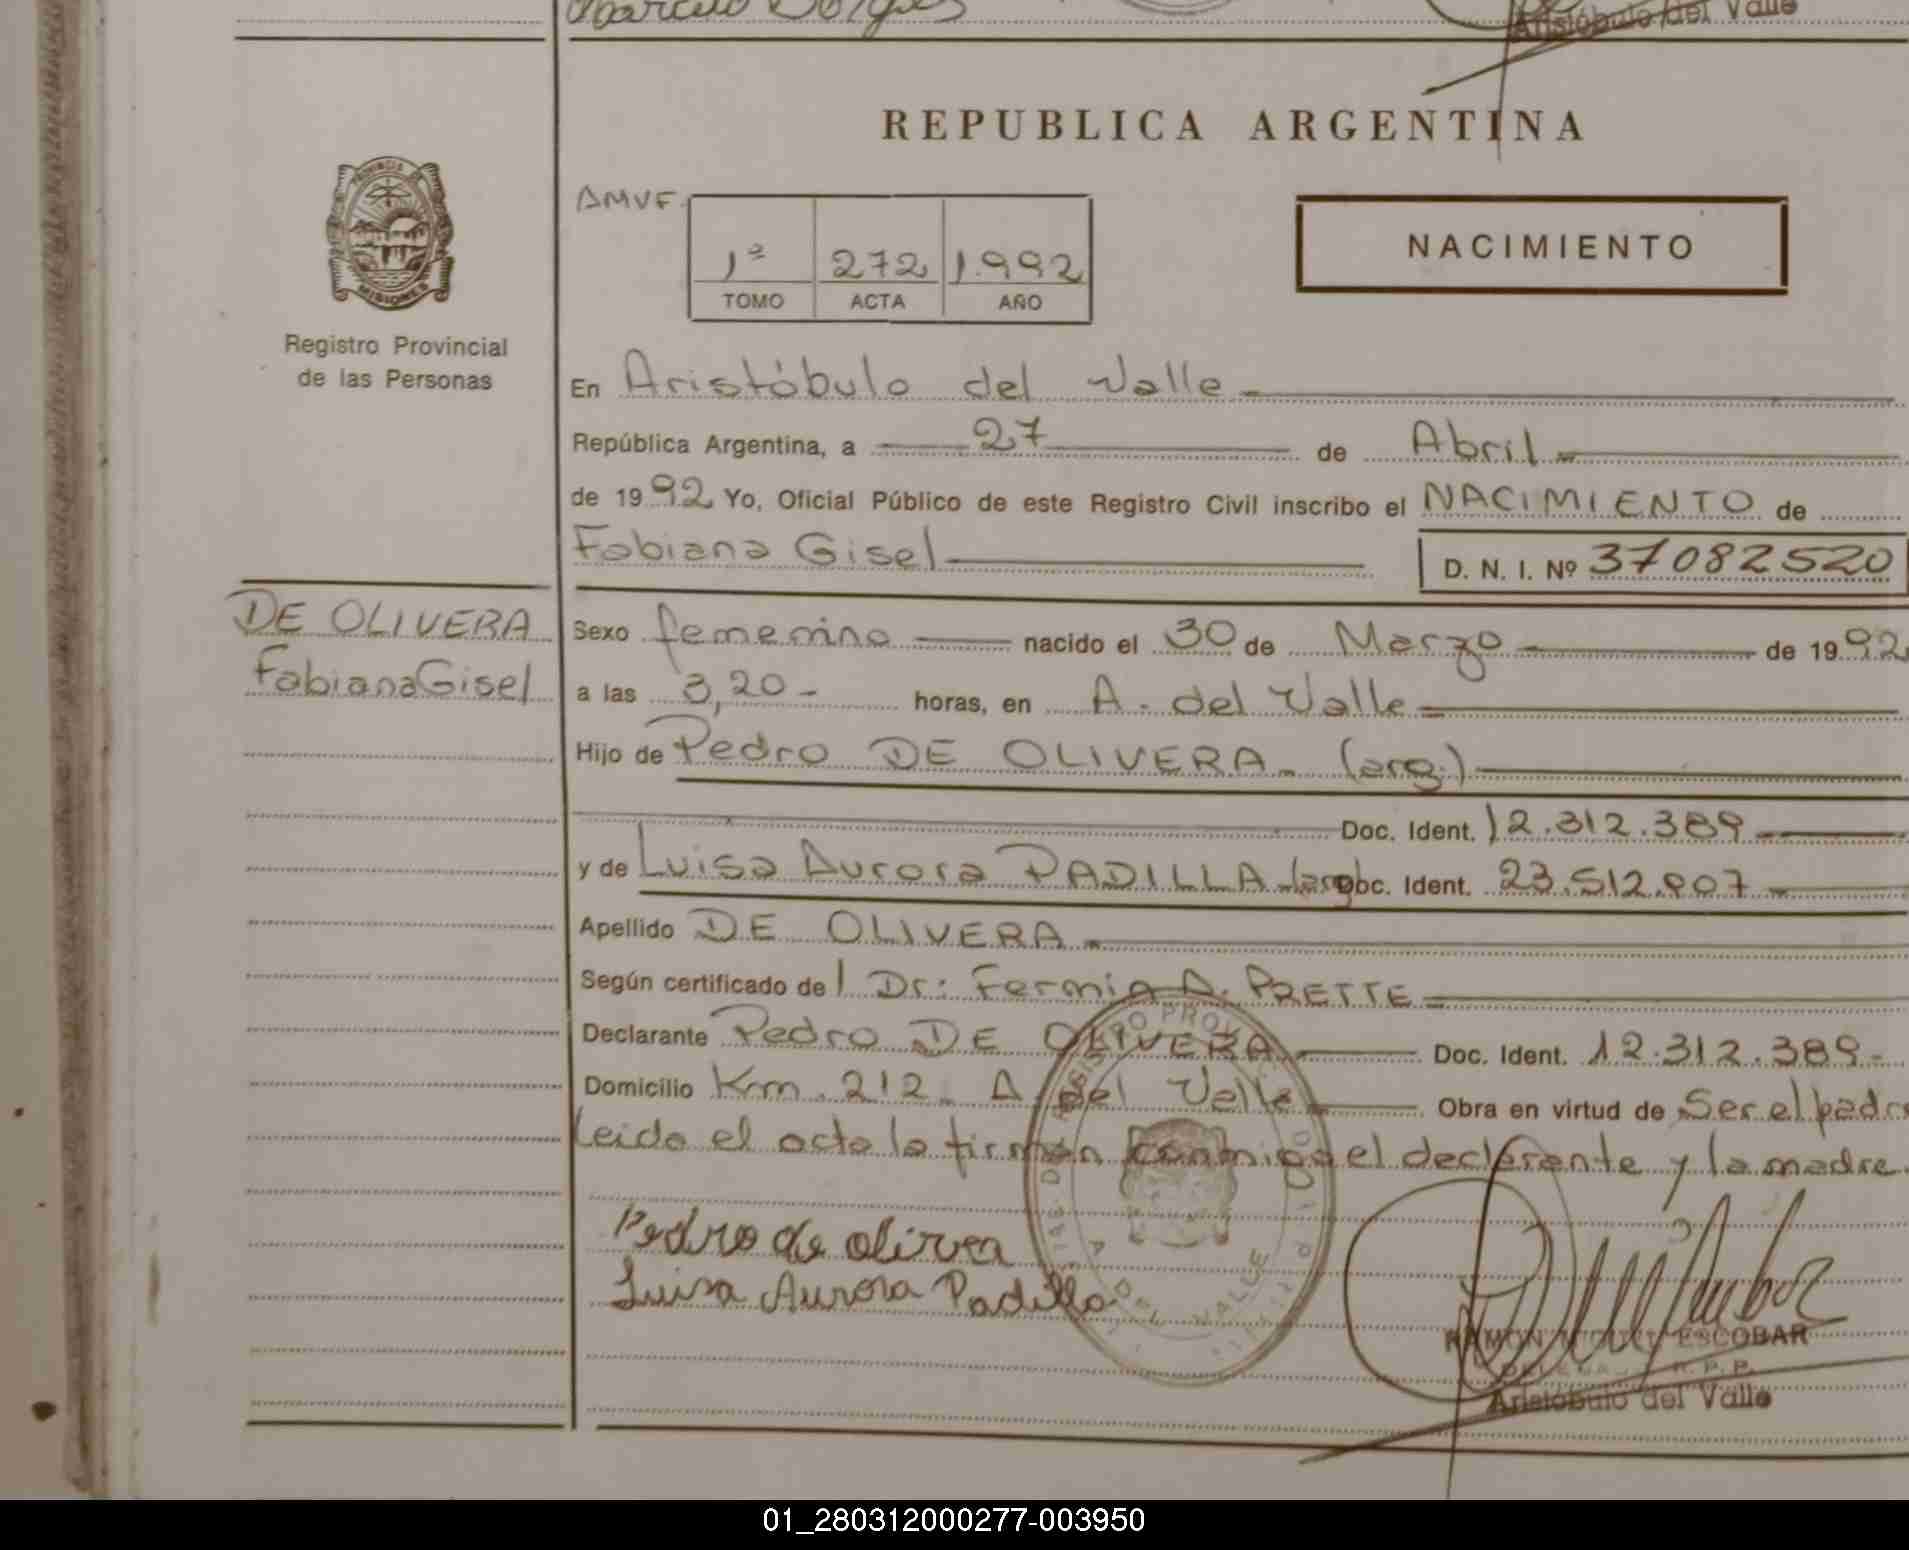 Aristóbulo del Valle
REPUBLICA ARGENTINA
PROVINCIA DE
MISIONES
Registro Provincial
de las Personas
AMVF.
1ª 272 1.992
TOMO ACTA AÑO
NACIMIENTO
En Aristóbulo del Valle
República Argentina, a 27 de Abril
de 1992 Yo, Oficial Público de este Registro Civil inscribo el NACIMIENTO de
Fabiana Gisel
D. N. I. Nº 37082520
DE OLIVERA
Fabiana Gisel
Sexo femenino nacido el 30 de Marzo de 1992
a las 3,20 - horas, en A. del Valle
Hijo de Pedro DE OLIVERA - (arg.)
Doc. Ident. 12.312.389
y de Luisa Aurora PADILLA (arg) Doc. Ident. 23.512.907
Apellido DE OLIVERA
Según certificado del Dr: Fermin A. PRETTE
Declarante Pedro DE OLIVERA Doc. Ident. 12.312.389-
Domicilio Km. 212 - A. del Valle Obra en virtud de Ser el padre
Leido el acta la firman conmigo el declarante y la madre.
Pedro de olivera
Luisa Aurora Padilla
A. DEL VALLE
RAMON MIGUEL ESCOBAR
R. P. P.
Aristóbulo del Valle
01_280312000277-003950